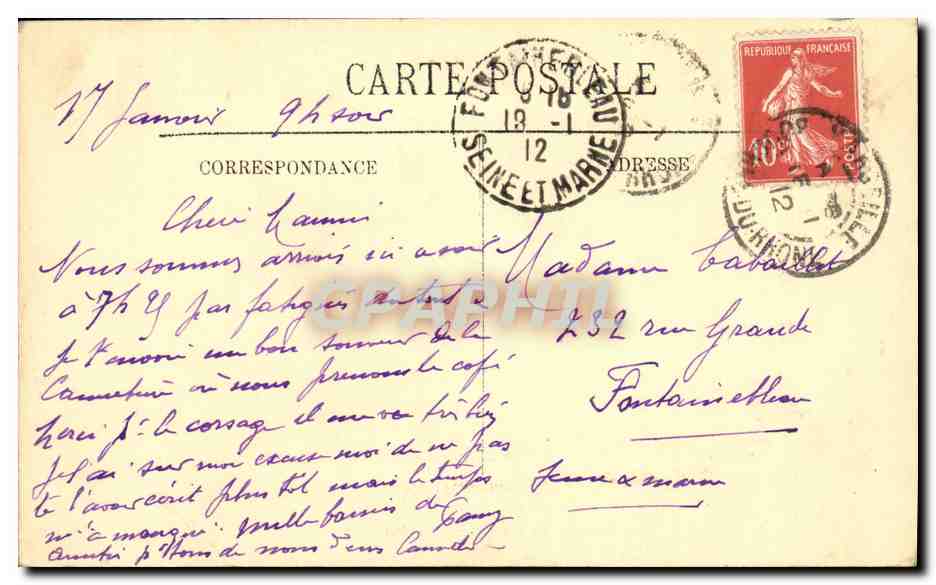 CARTE POSTALE
17 Janvier 9h soir
CORRESPONDANCE
ADRESSE
Nous sommes arrivés ici a soir
à 7h 25 pas fatigués du tout
Je t'envoie un bon souvenir de la
où nous prenons le café
Merci pr le corsage il me va très bien
Je l'ai sur moi excuse moi de ne pas
te l'avoir écrit plus tôt mais le temps
m'a manqué. mille baisers de
de nous deux
Madame
232 rue Grande
Fontainebleau
Seine & marne
FONTAINEBLEAU
18 -1
12
SEINE ET MARNE
REPUBLIQUE FRANÇAISE
10
POSTES
MARSEILLE
-1
12
DU-RHONE
CPAPHIL